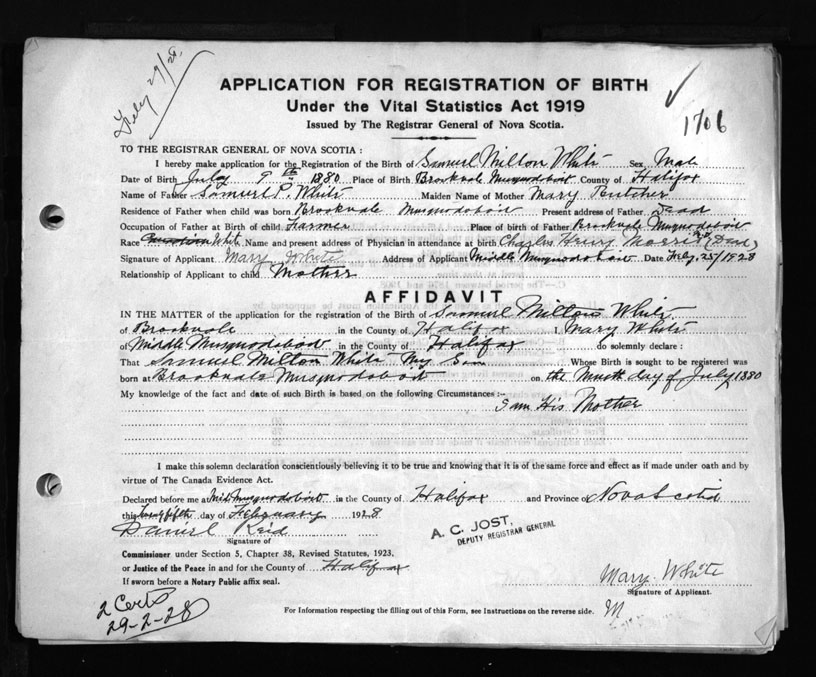 Feby 29/28
APPLICATION FOR REGISTRATION OF BIRTH
Under the Vital Statistics Act 1919
Issued by The Registrar General of Nova Scotia.
1706
TO THE REGISTRAR GENERAL OF NOVA SCOTIA :
I hereby make application for the Registration of the Birth of Samuel Milton White Sex Male
Date of Birth July 9th 1880 Place of Birth Brookvale Musquodoboit County of Halifax
Name of Father Samuel P. White Maiden Name of Mother Mary Butcher
Residence of Father when child was born Brookvale Musquodoboit Present address of Father Dead
Occupation of Father at Birth of child Farmer Place of birth of Father Brookvale Musquodoboit
Race White Name and present address of Physician in attendance at birth Charles Henry (Dead)
Signature of Applicant Mary White Address of Applicant Middle Musquodoboit Date Feby, 25/1928
Relationship of Applicant to child Mother
AFFIDAVIT
IN THE MATTER of the application for the registration of the Birth of Samuel Milton White
of Brookvale in the County of Halifax I, Mary White
of Middle Musquodoboit in the County of Halifax do solemnly declare :
That Samuel Milton White My Son Whose Birth is sought to be registered was
born at Brookvale Musquodoboit on the Nineth day of July 1880
My knowledge of the fact and date of such Birth is based on the following Circumstances :-
I am His Mother
I make this solemn declaration conscientiously believing it to be true and knowing that it is of the same force and effect as if made under oath and by
virtue of The Canada Evidence Act.
Declared before me at Mid Musquodoboit in the County of Halifax and Province of Nova Scotia
this day of February 1928
Daniel Reid
Signature of
A. C. JOST,
DEPUTY REGISTRAR GENERAL
Commissioner under Section 5, Chapter 38, Revised Statutes, 1923.
or Justice of the Peace in and for the County of Halifax
If sworn before a Notary Public affix seal.
Mary White
Signature of Applicant.
2 Certs
29-2-28
For Information respecting the filling out of this Form, see Instructions on the reverse side.
M